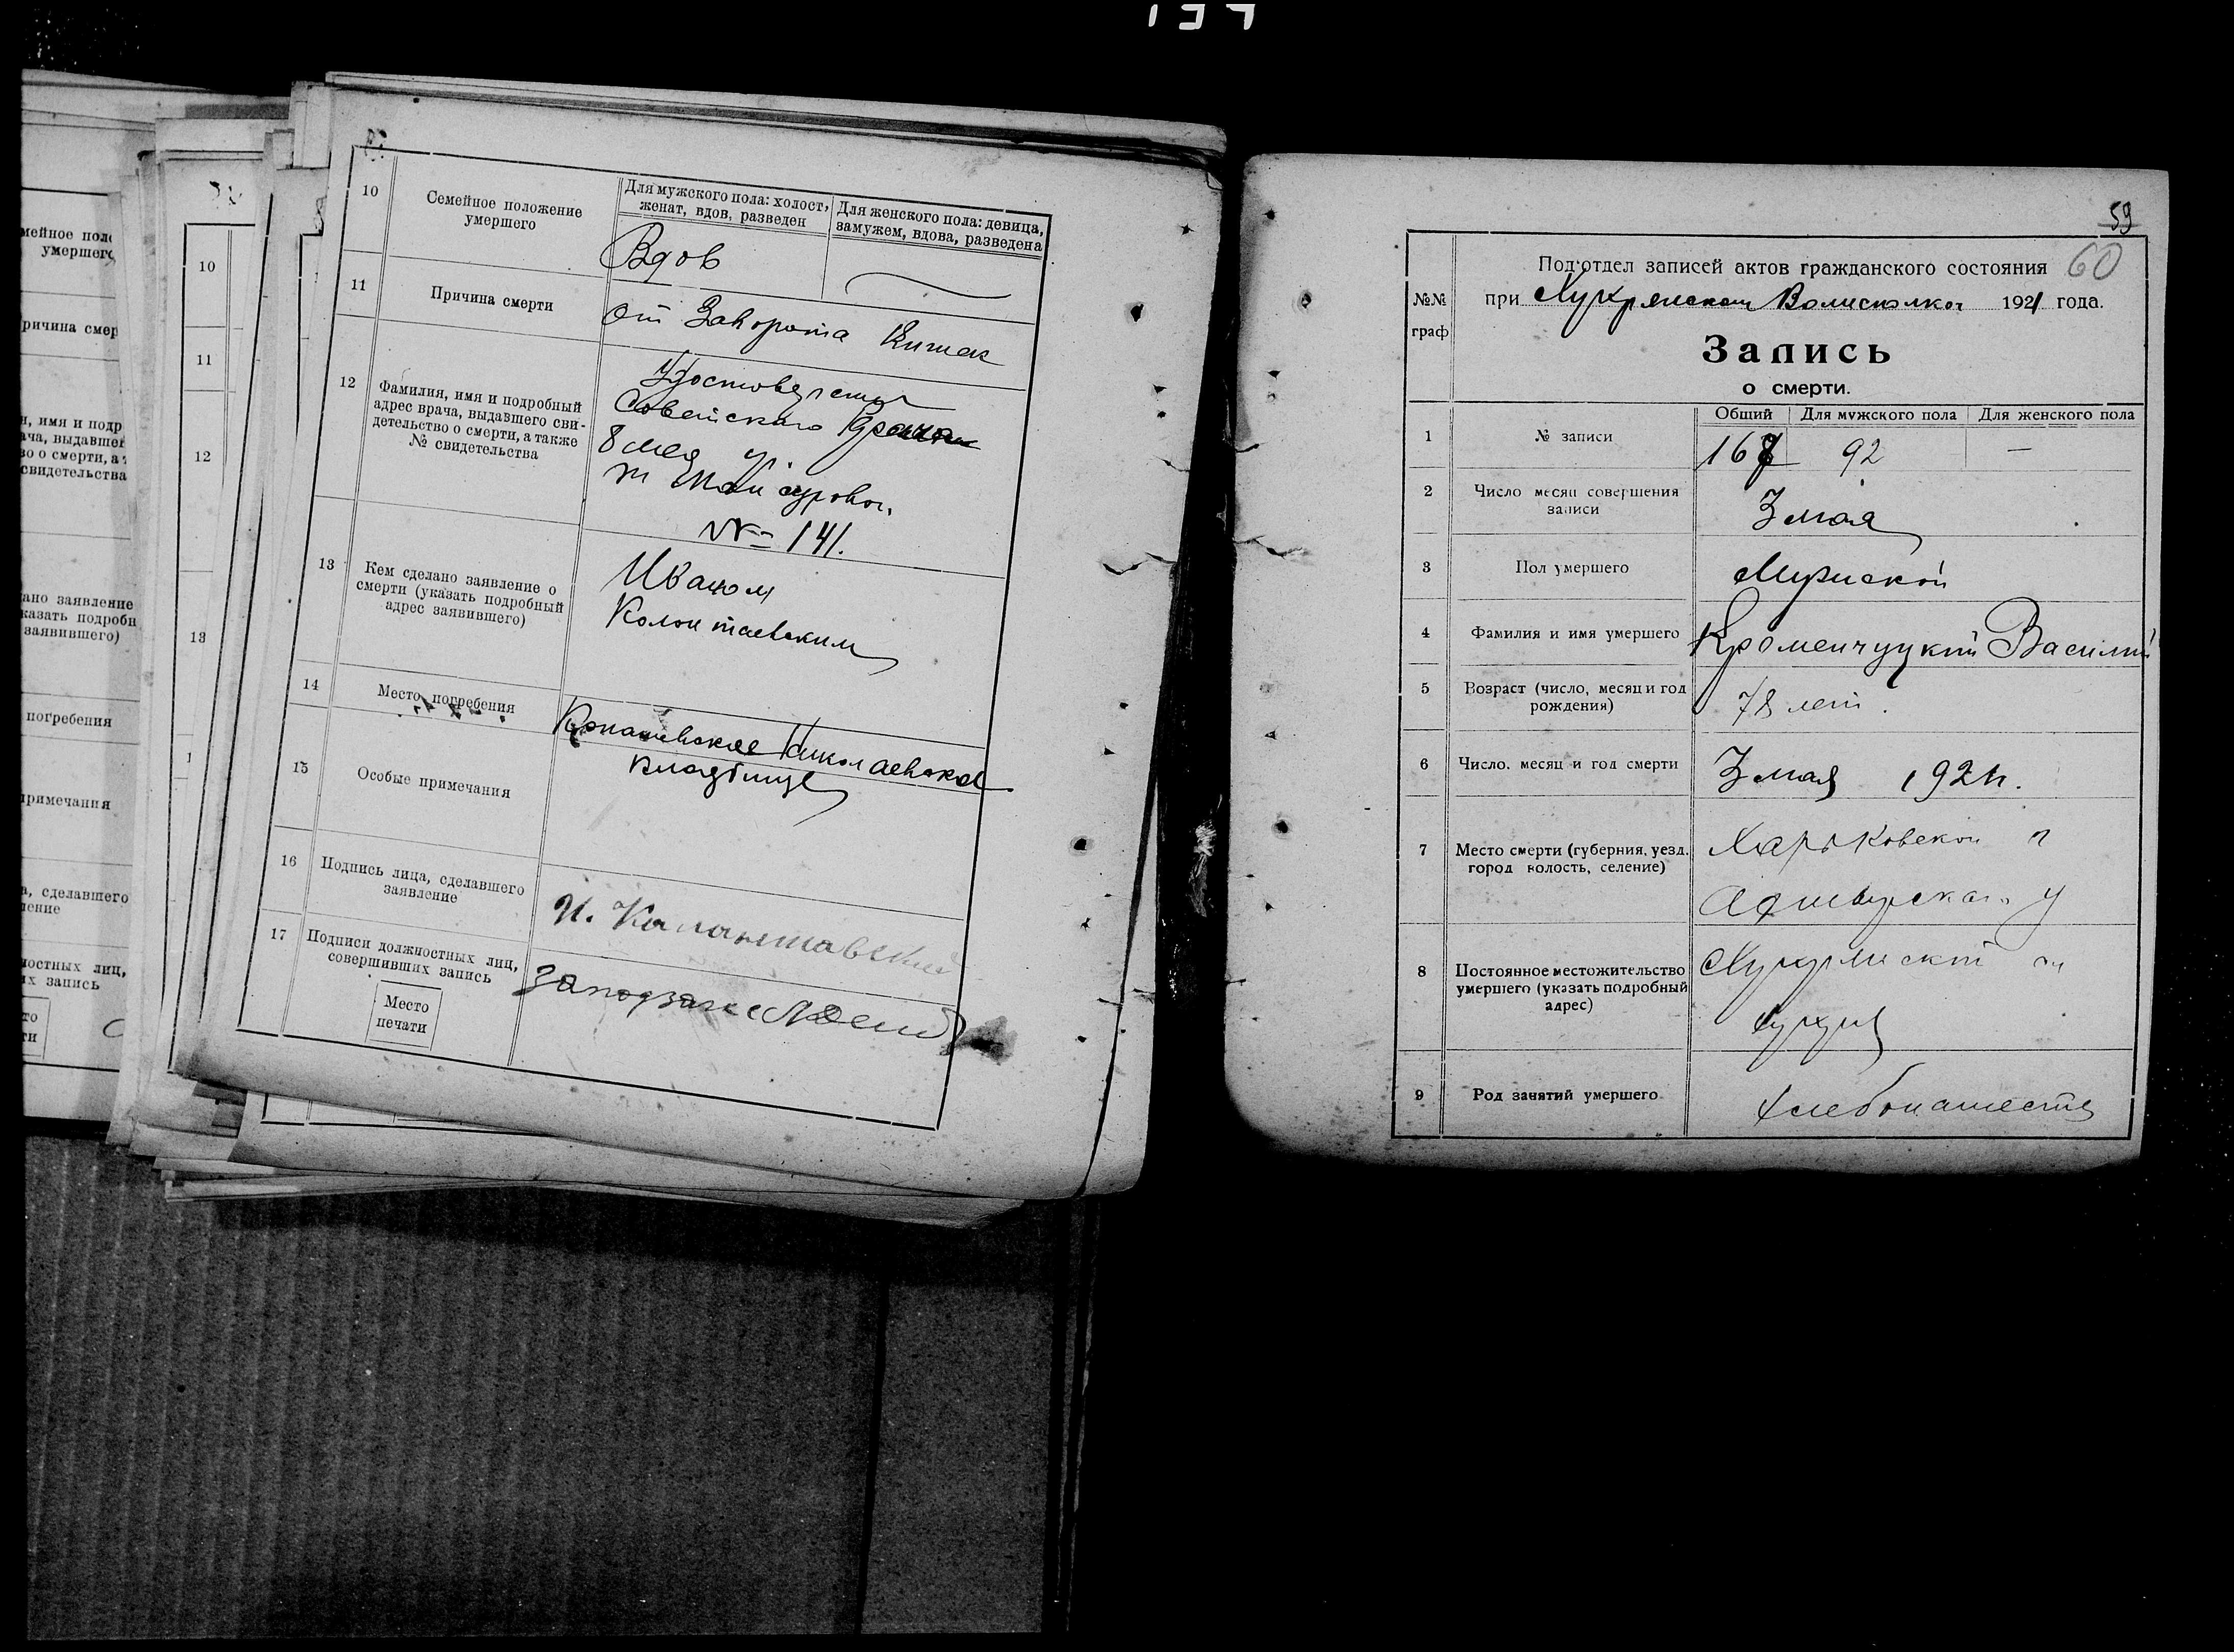 10
Семейное положение
умершего
Для мужского пола: холост,
женат, вдов, разведен
Для женского пола: девица,
замужем, вдова, разведена
Вдов
11
Причина смерти
От Заворота Кишек
12
Фамилия, имя и подробный
адрес врача, выдавшего сви-
детельство о смерти, а также
№ свидетельства
Советского Врача
8 мая
№ 141.
13
Кем сделано заявление о
смерти (указать подробный
адрес заявившего)
Иваном
Колонтаевским
14
Место погребения
Николаевское
кладбище
15
Особые примечания
16
Подпись лица, сделавшего
заявление
И. Калантаевский
17
Подписи должностных лиц,
совершивших запись
Место
печати
мейное поло
умершего
ричина смер
и, имя и подр
ача, выдавшег
во о смерти, а
свидетельства
ано заявление
казать подробн
заявившего)
погребения
римечания
а, сделавшего
ление
ностных лиц,
их запись
10
11
12
13
59
60
№№
граф
Под'отдел записей актов гражданского состояния
при 1921 года.
Запись
о смерти.
Общий
Для мужского пола
Для женского пола
1
№ записи
167
92
—
2
Число месяц совершения
записи
3 мая
3
Пол умершего
Мужской
4
Фамилия и имя умершего
Кроменчуцкий Василий
5
Возраст (число, месяц и год
рождения)
78 лет.
6
Число, месяц и год смерти
3 мая 1921 г.
7
Место смерти (губерния, уезд,
город волость, селение)
Харьковской г
у
8
Постоянное местожительство
умершего (указать подробный
адрес)
9
Род занятий умершего